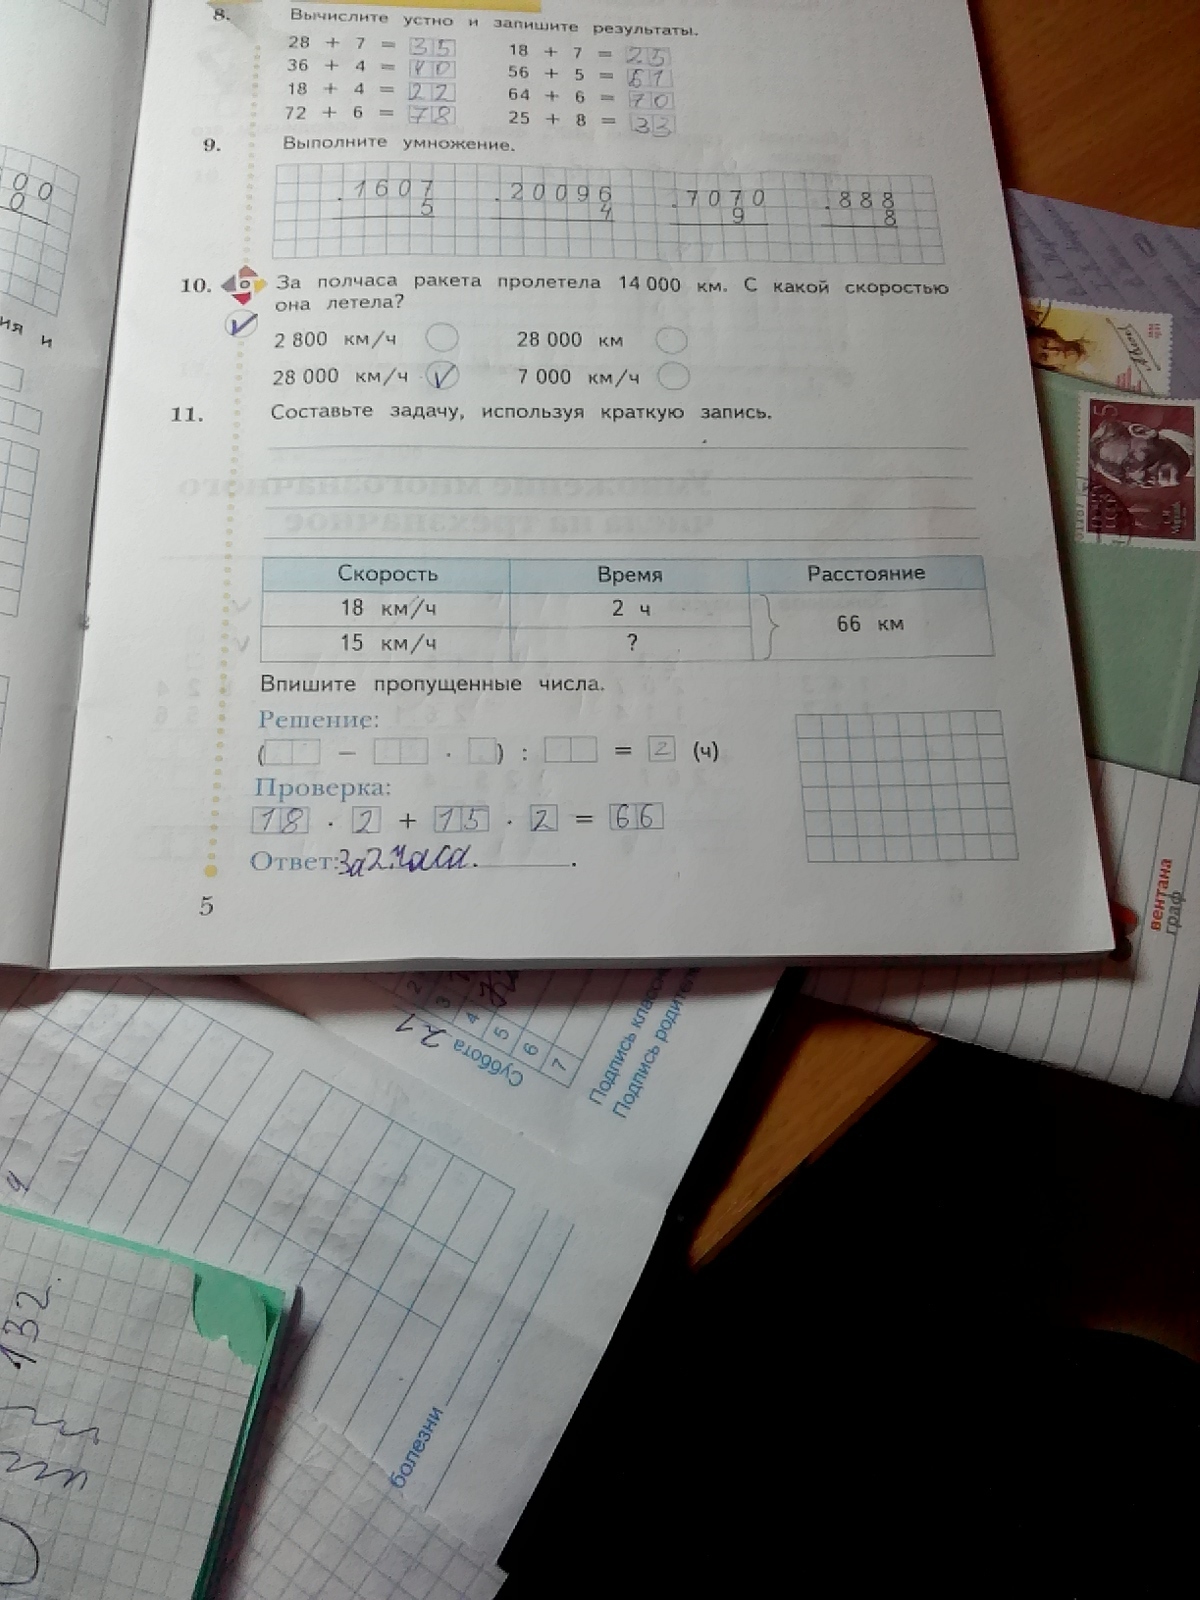 8. Вычислите устно и запишите результаты.
28 + 7 = 35 18 + 7 = 25
36 + 4 = 40 56 + 5 = 61
18 + 4 = 22 64 + 6 = 70
72 + 6 = 78 25 + 8 = 33
9. Выполните умножение.
1607 20096 7070 888
5 4 9 8
10. За полчаса ракета пролетела 14 000 км. С какой скоростью
она летела?
2 800 км/ч 28 000 км
28 000 км/ч V 7 000 км/ч
11. Составьте задачу, используя краткую запись.
Скорость Время Расстояние
18 км/ч 2 ч 66 км
15 км/ч ?
Впишите пропущенные числа.
Решение:
( – · ) : = 2 (ч)
Проверка:
18 · 2 + 15 · 2 = 66
Ответ: За 2 часа.
5
00
0
ия и
5
вентана
граф
2
3
4
5
6
7
Суббота 21
Подпись класс
Подпись родител
болезни
132.